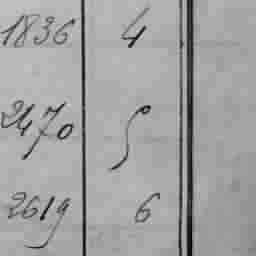 1836 4
2470 5
2619 6